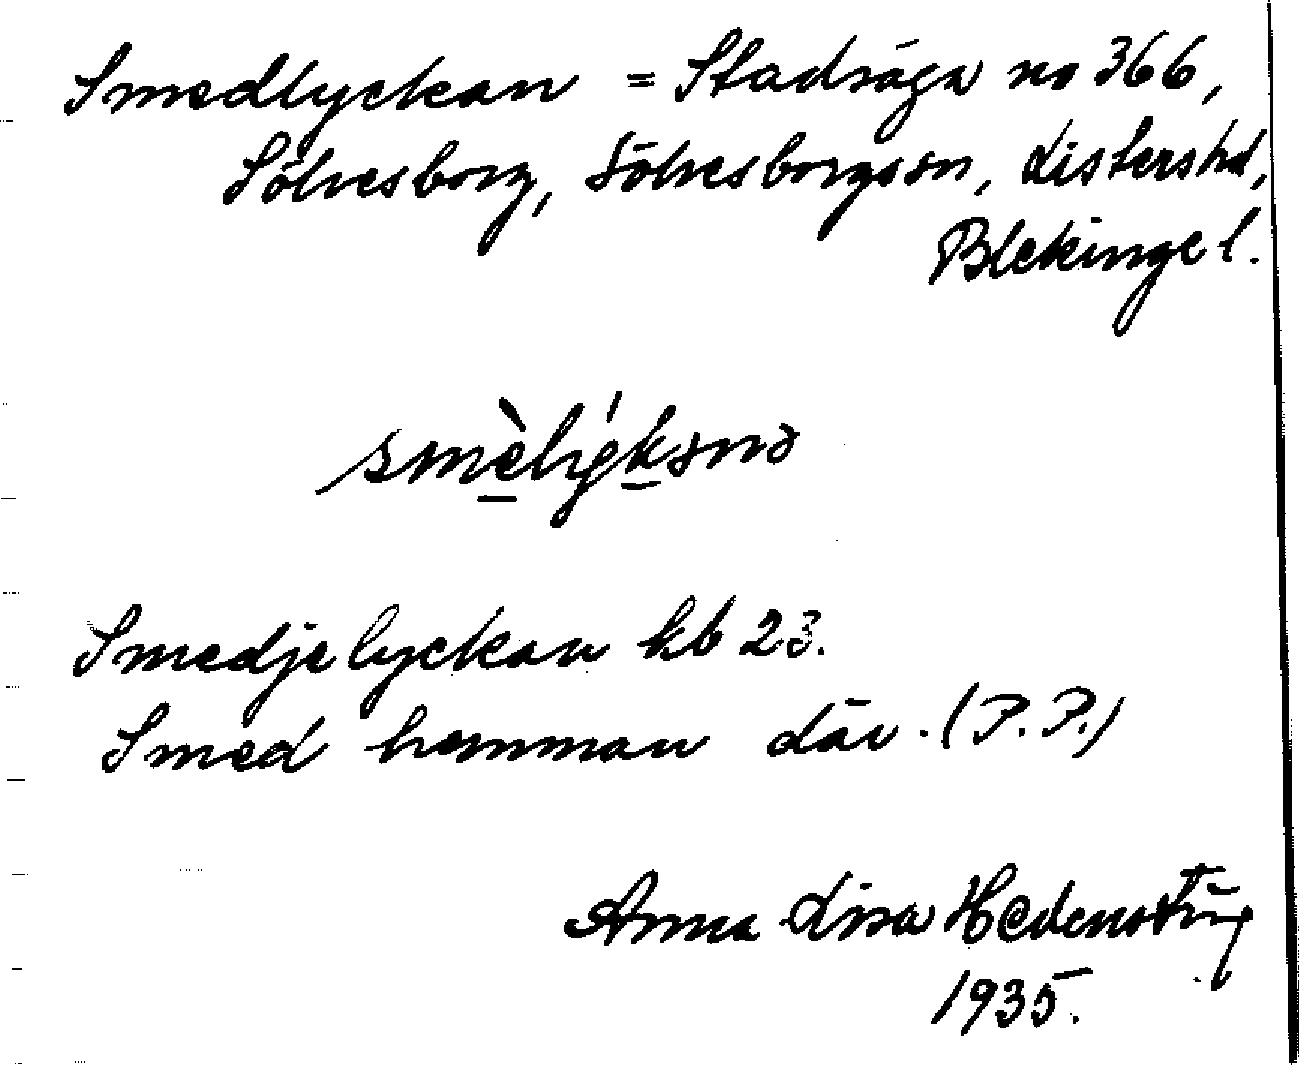 Smedlyckan = Stadsäga no 366,
Sölvesborg, Sölvesborgssn, Listershd,
Blekinge l.
smèlýkənə
Smedjelyckan kb 23.
Smed hemman där. (P.P.)
Anna Lisa Hedenstierna
1935.